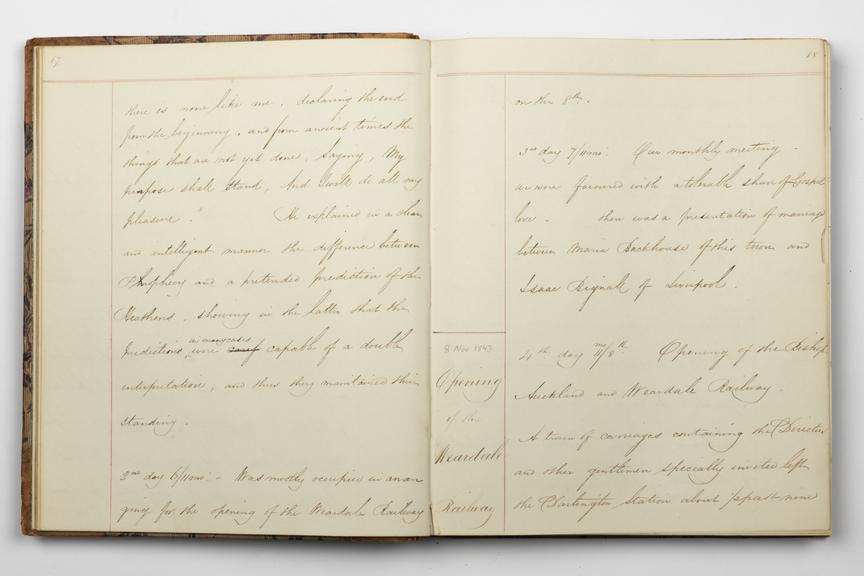 17
there is none like me, declaring the end
from the beginning, and from ancient times the
things that are not yet done, saying, My
purpose shall stand, And I will do all my
pleasure." He explained in a clear
and intelligent manner the difference between
Prophecy and a pretended prediction of the
Heathens, showing in the latter that the
in many cases
predictions were capable of a double
interpretation, and thus they maintained their
standing.
2nd day 6/11mo. - Was mostly occupied in arran
ging for the opening of the Weardale Railway
18
on the 8th.
3rd day 7/11mo. Our monthly meeting -
we were favoured with a tolerable share of Gospel
love - there was a presentation of marriage
between Maria Backhouse of this town and
Isaac Bignall of Liverpool.
8 Nov 1843
Opening
of the
Weardale
Railway
4th day 11mo/8th. Opening of the Bishop
Auckland and Weardale Railway.
A train of carriages containing the Directors
and other gentlemen specially invited left
the Darlington Station about ½ past nine